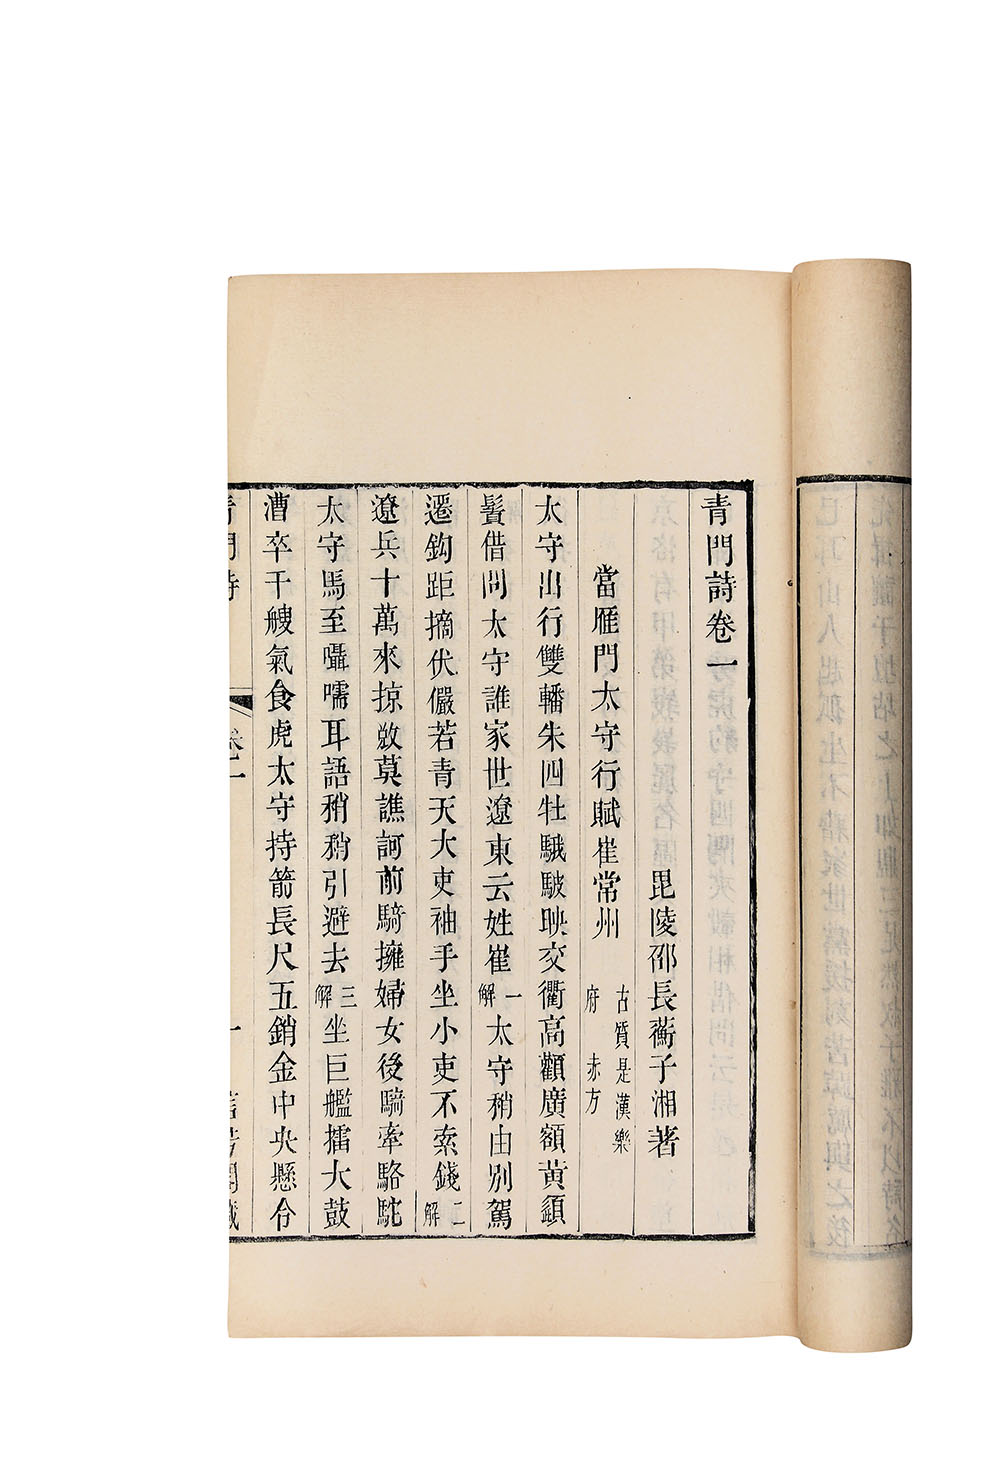 青門詩卷一
毘陵邵長蘅子湘著
當雁門太守行賦崔常州 古質是漢樂府 赤方
太守出行雙轓朱四牡騀駊映交衢高顴廣額黃鬚
鬢借問太守誰家世遼東云姓崔一解太守稍由別駕
遷鉤距摘伏儼若青天大吏袖手坐小吏不索錢二解
遼兵十萬來掠敓莫譙訶前騎擁婦女後騎牽駱駝
太守馬至囁嚅耳語稍稍引避去三解坐巨艦擂大鼓
漕卒干艘氣食虎太守持箭長尺五銷金中央懸令
青門詩 卷一 一